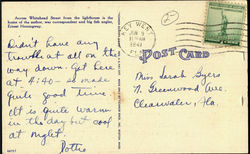 Across Whitehead Street from the lighthouse is the
home of the author, war correspondent and big fish angler,
Ernest Hemingway.
Didn't have any
trouble at all on the
way down. Got here
at 4:40 - so made
quite good time.
It is quite warm
in the day but cool
at night.
KEY WEST
JUN 9
1941
FLA.
POST CARD
Miss Sarah Byers
Greenwood Ave.
Clearwater, Fla.